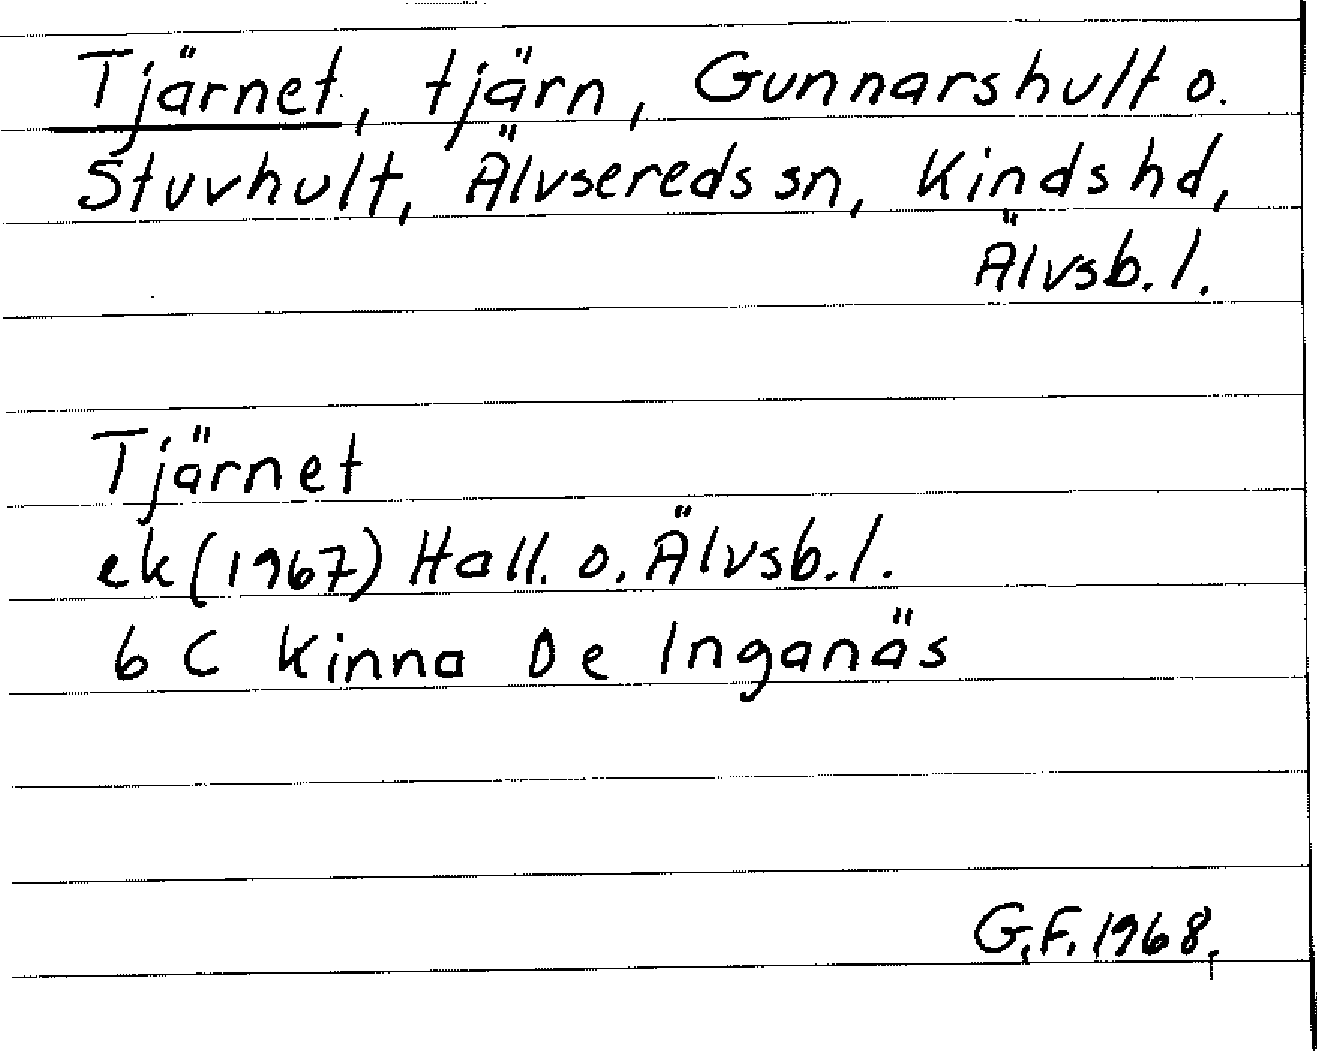 Tjärnet, tjärn, Gunnarshult o.
Stuvhult, Älvsereds sn, Kinds hd,
Älvsb. l.
Tjärnet
ek (1967) Hall. o. Älvsb. l.
6 C Kinna De Inganäs
G.F. 1968.